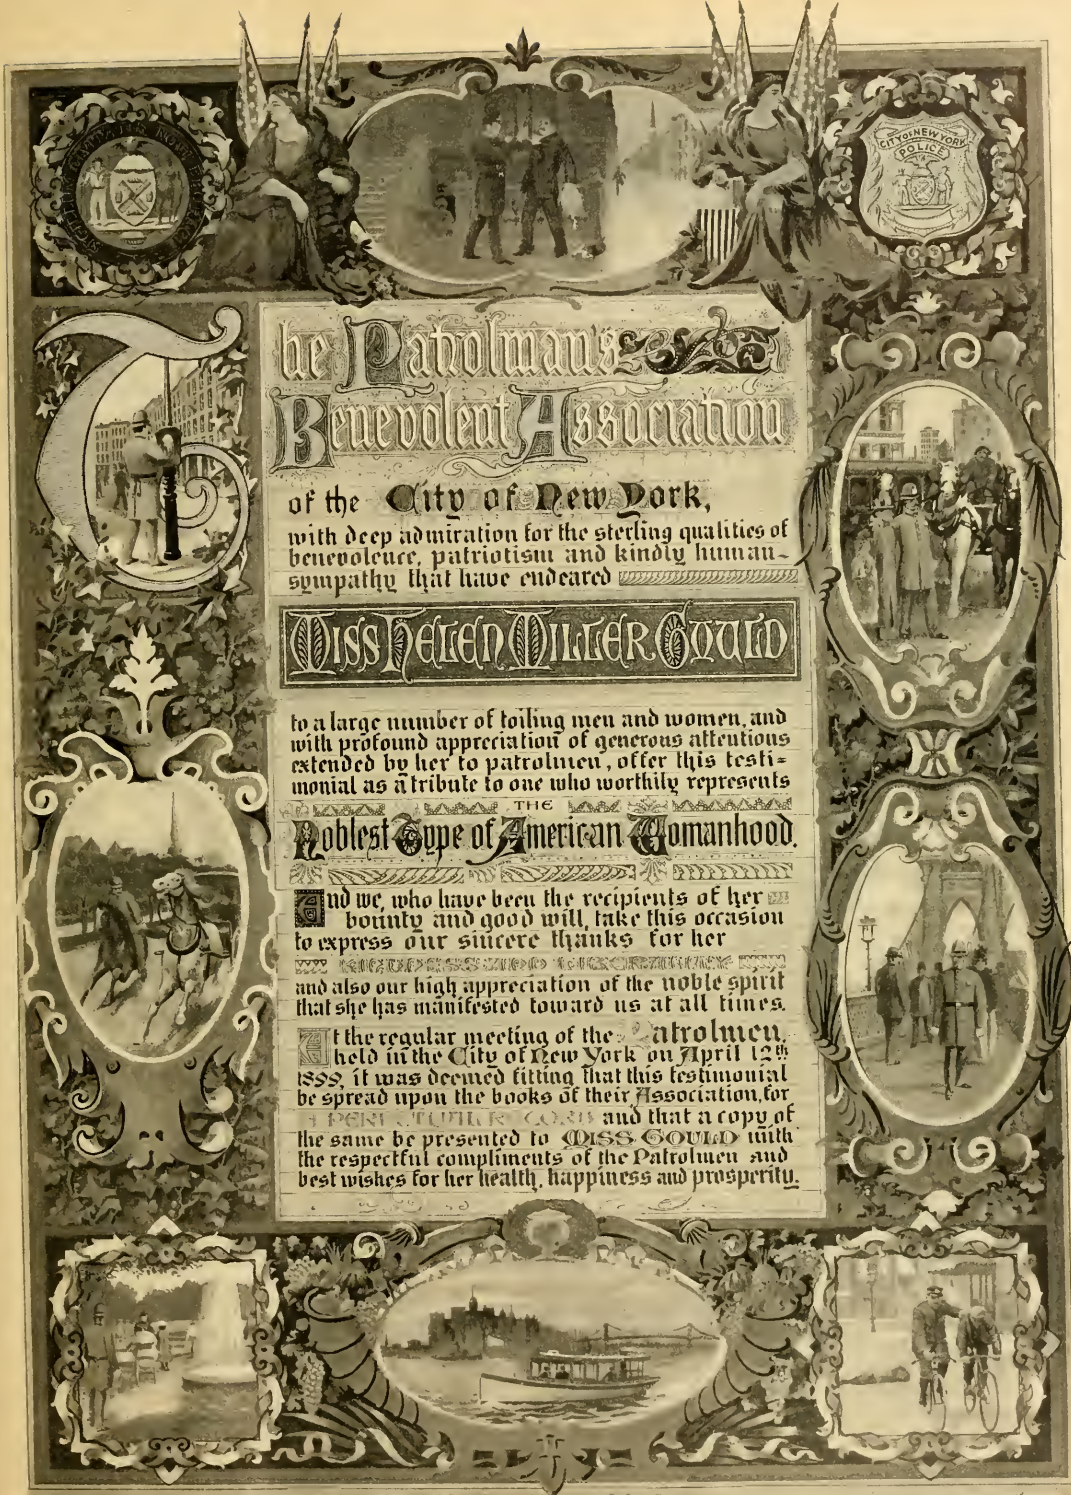 CITY OF NEW YORK
POLICE
The Patrolman's
Benevolent Association
of the City of New York,
with deep admiration for the sterling qualities of
benevolence, patriotism and kindly human-
sympathy that have endeared
MISS HELEN MILLER GOULD
to a large number of toiling men and women, and
with profound appreciation of generous attentions
extended by her to patrolmen, offer this testi=
monial as a tribute to one who worthily represents
THE
Noblest Type of American Womanhood.
And we, who have been the recipients of her
bounty and good will, take this occasion
to express our sincere thanks for her
KINDNESS AND LIBERALITY
and also our high appreciation of the noble spirit
that she has manifested toward us at all times.
At the regular meeting of the Patrolmen,
held in the City of New York on April 12th
1899, it was deemed fitting that this testimonial
be spread upon the books of their Association, for
and that a copy of
the same be presented to MISS GOULD with
the respectful compliments of the Patrolmen and
best wishes for her health, happiness and prosperity.